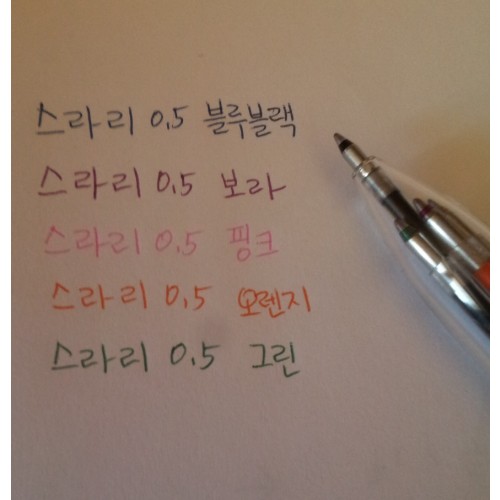 스라리 0.5 블루블랙
스라리 0.5 보라
스라리 0.5 핑크
스라리 0.5 오렌지
스라리 0.5 그린